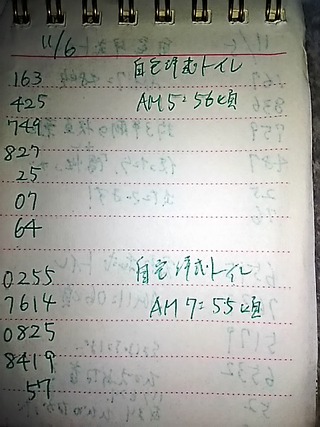 11/6 自宅洋式トイレ
163
425 AM5:56頃
749
827
25
07
64
0255 自宅洋式トイレ
7614 AM7:55頃
0825
8419
57